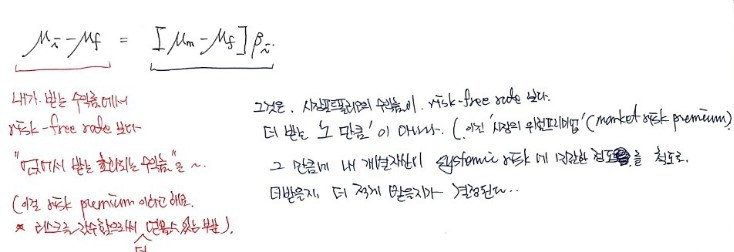 μi - μf = [μm - μf] βi.
내가 받는 수익률에서
risk-free rate 보다
"얹어서 받는 초과되는 수익률"은 ~
(이걸 risk premium 이라고 해요.
* 리스크를 감수함으로써 더 얻을 수 있는 부분).
그것은. 시장포트폴리오의 수익률이. risk-free rate 보다.
더 받는 '그 만큼'이 아니라. (이건 '시장의 위험프리미엄' (market risk premium)
그 만큼에 내 개별자산이 systemic risk에 민감한 정도를 척도로.
더 받을지, 더 적게 받을지가 결정된다..